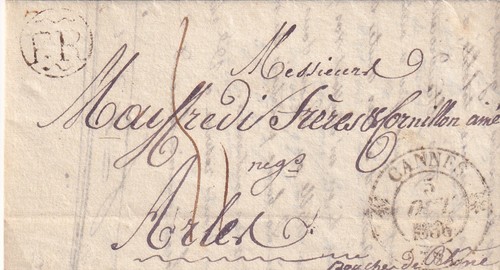 P.R
Messieurs
Mayffredi Frères & Cornillon ainé
negts
Arles
CANNES
5
OCT
1836
Bouche du Rhône